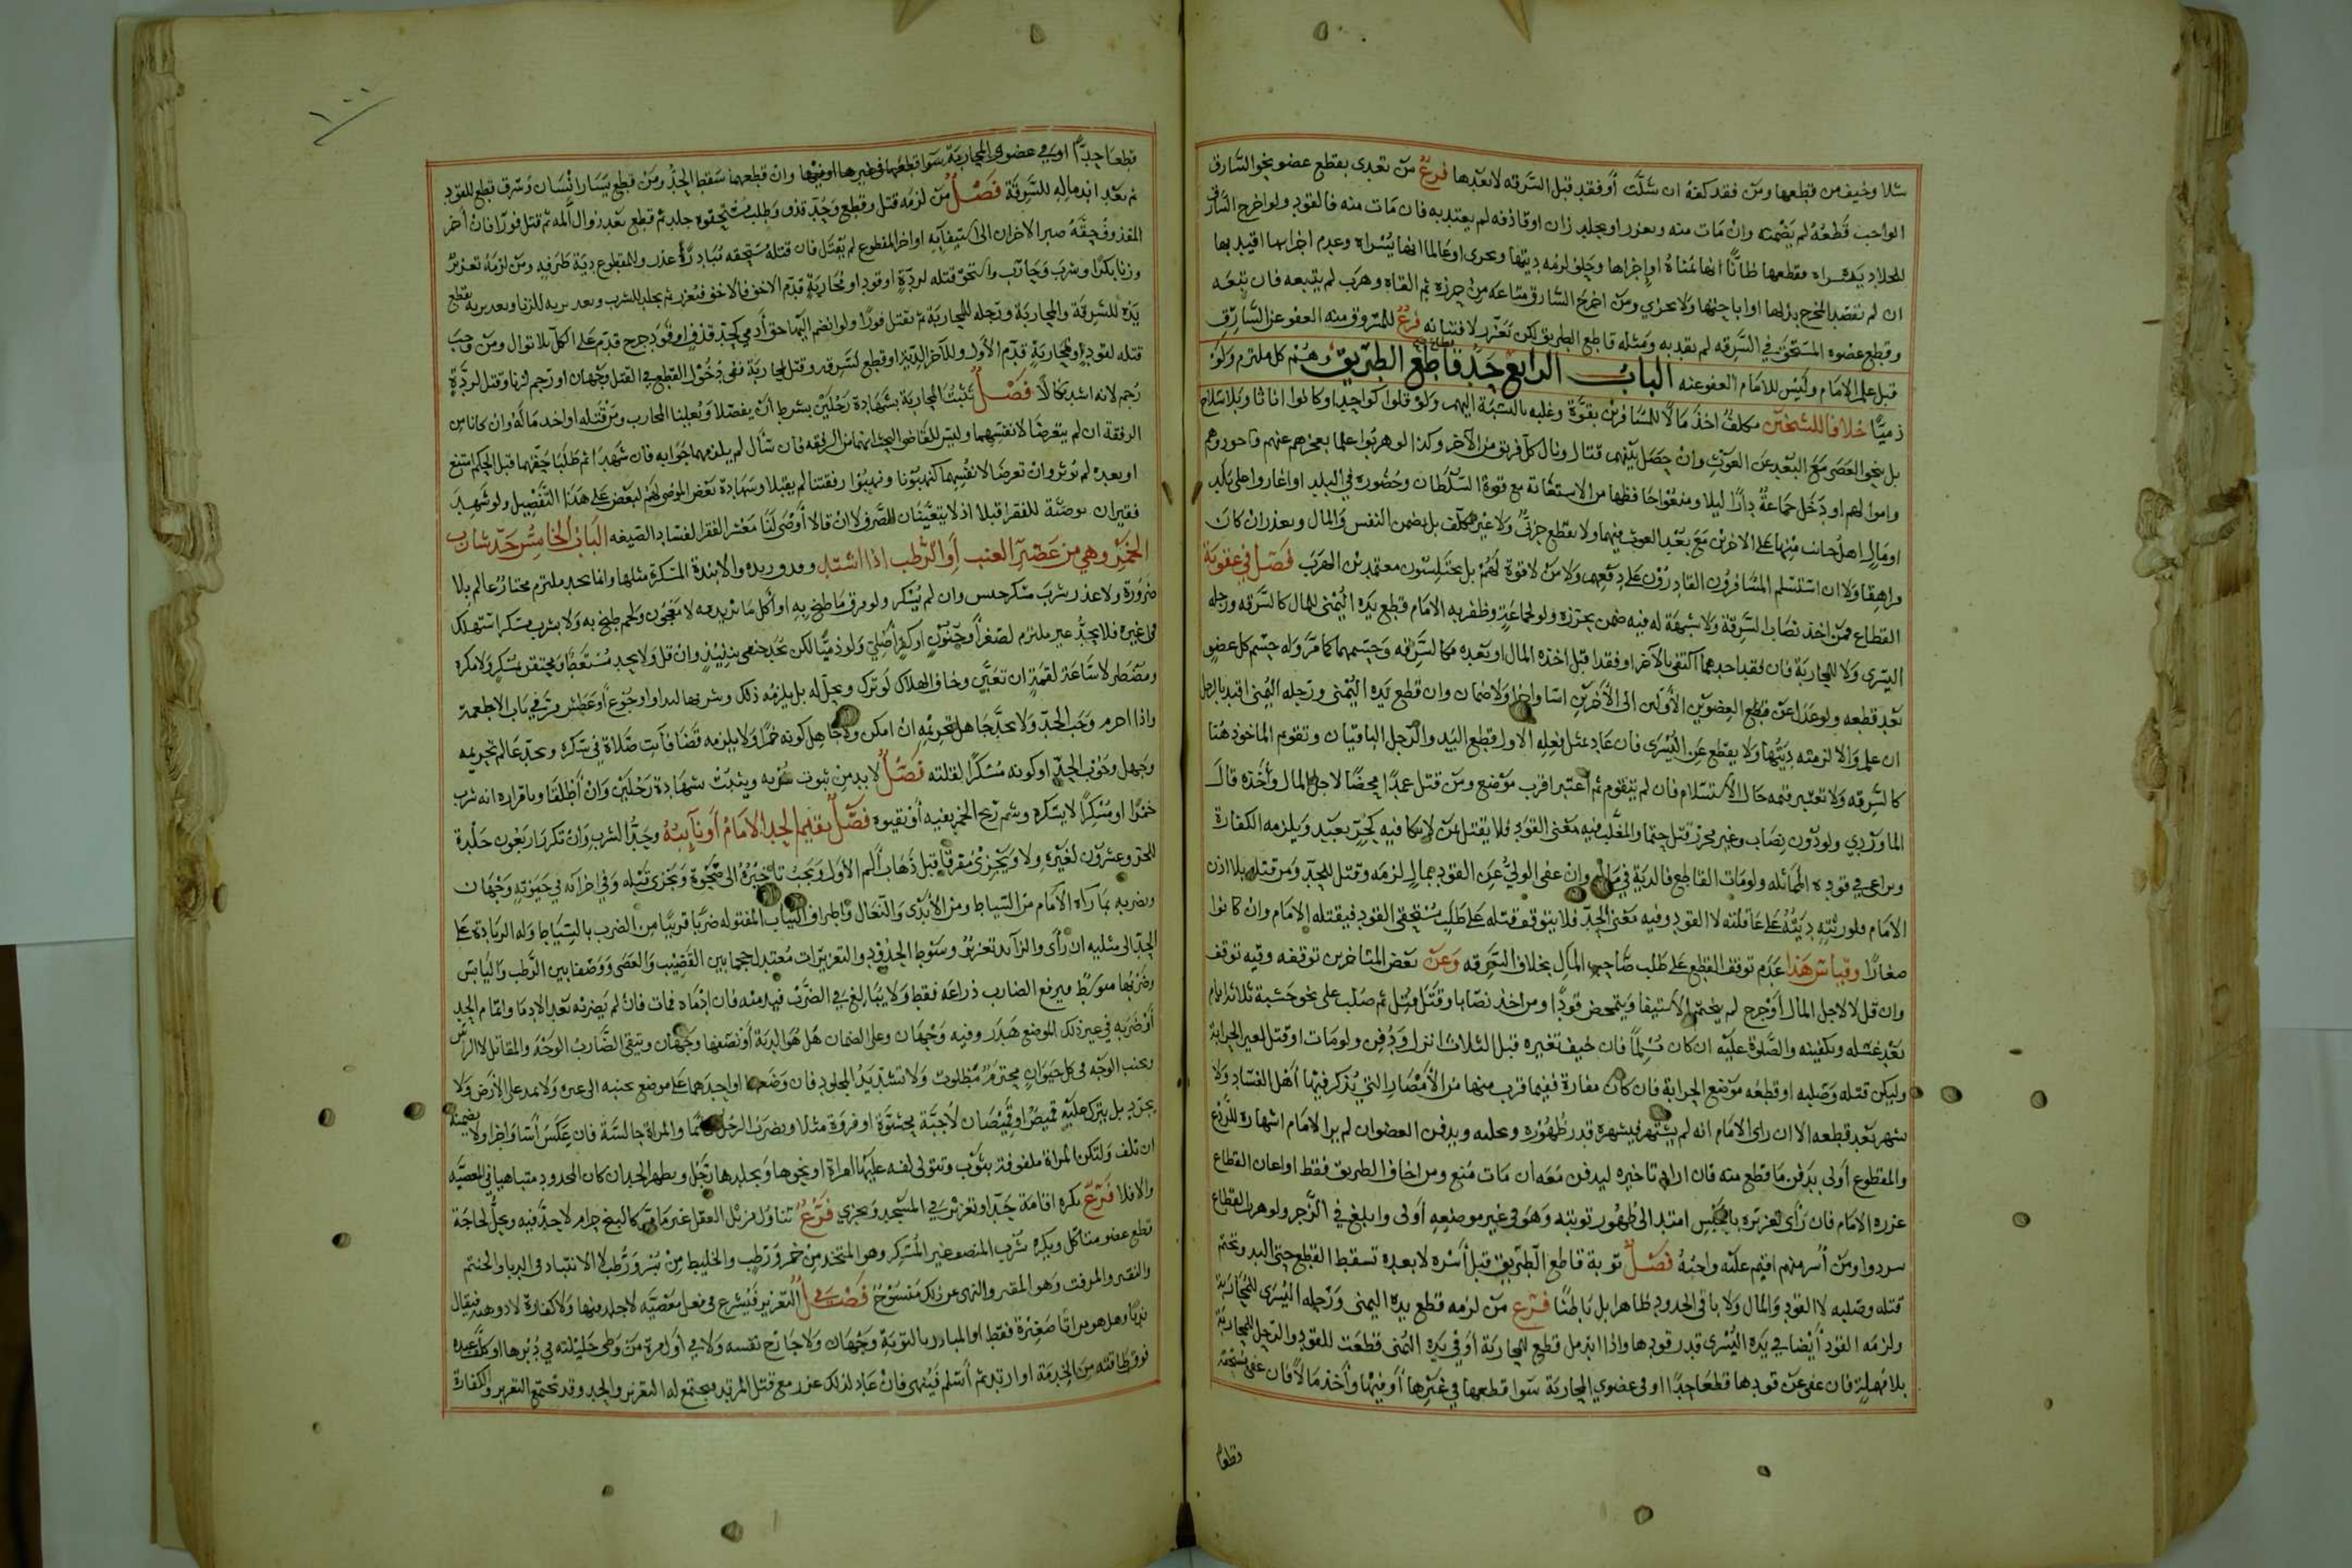 شلا وخيف من قطعها ومن فقد كفه ان شلت أو فقد قبل السرقة لا بعدها فرع من تعدى بقطع عضو نحو السارق
الواجب قطعه لم يضمنه وان مات منه ويعزر او بجلد زان او قاذفه لم يعتد به فان مات منه فالقود ولو اخرج السارق
للجلاد يده يسراه فقطعها ظانا انها يمناه او اجزاها وحلف لزمه ديتها ويجزى او عالما انها يسراه وعدم اجزائها اقيد بها
ان لم يقصد المخرج بذلها او اباحتها ولا يجزي ومن اخرج السارق متاعه من حرزه ثم القاه وهرب لم يتبعه فان تبعه
وقطع عضوه المستحق في السرقة لم يقد به ومثله قاطع الطريق لكن يعزر لافتياته فرع للمسروق منه العفو عن السارق
قبل علم الامام وليس للامام العفو عنه الباب الرابع حد قاطع الطريق وهم كل ملتزم ولو
ذميا خلافا للشيخين مكلف اخذ مالا للمسافرين بقوة وغلبه بالنسبة اليهم ولو قلوا كواحد او كانوا اناثا وبلا سلاح
بل بنحو العصى مع البعد عن الغوث وان حصل بينهم قتال ونال كل فريق من الآخر وكذا لو هربوا علما بعجزهم عنهم
واموالهم او دخل جماعة دارا ليلا ومنعوا حافظها من الاستغاثة مع قوة السلطان وحضوره في البلد او اغاروا على بلد
او مال اهل جانب منها على الاخرين مع بعد الغوث فيهما ولا يقطع حربي ولا غير مكلف بل يضمن النفس والمال ويعزر ان كان
مراهقا ولا ان استسلم المسافرون القادرون على دفعهم ولا من لا قوة لهم بل يختلسون معتمدين الهرب فصل في عقوبة
القطاع فمن اخذ نصاب السرقة ولا شبهة له فيه ضمن بحرزه ولو لجماعة وظفر به الامام قطع يده اليمنى للمال كالسرقه ورجله
اليسرى ولا للمحاربة فان فقد احدهما اكتفي بالآخر او فقدا قبل اخذه المال او بعده فكالسرقة وحسمهما كما مر وله حسم كل عضو
بعد قطعه ولو عدل عن قطع العضوين الأولين الى الأخرين اسا واجزا ولا ضمان وان قطع يده اليمنى ورجله اليمنى اقيد بالرجل
ان علم والا لزمته ديتها ولا يقطع عن اليسرى فان عاد بمثل فعله الاول قطع اليد والرجل الباقيتان وتقوم الماخوذ هنا
كالسرقه ولا تعتبر قيمه حال الاستسلام فان لم يتقوم ثم اعتبر اقرب موضع ومن قتل عمدا محضا لاجل المال وأخذه قال
الماوردي ولو دون نصاب وغير محرز قتل حتما والمغلب فيه معنى القود فلا يقتل بمن لا يكافيه كحر بعبد ويلزمه الكفارة
ويراعى في قوده المماثله ولو مات القاطع فالدية في ماله وان عفى الولي عن القود بمال لزمه وقتل للحد ومن قتله بلا اذن
الامام فلورثته ديته على عاقلته لا القود وفيه معنى الحد فلا يتوقف قتله على طلب مستحق القود فيقتله الامام وان كانوا
صغارا وقياس هذا عدم توقف القطع على طلب صاحب المال بخلاف السرقه وعن بعض المتاخرين توقفه وفيه توقف
وان قتل لا لاجل المال أو جرح لم يتحتم الاستيفا ويتمحض قودا ومن اخذ نصابا وقتل قتل ثم صلب على نحو خشبة ثلاثة ايام
بعد غسله وتكفينه والصلوة عليه ان كان مسلما فان خيف تغيره قبل الثلاث انزل ودفن ولو مات او قتل لغير الحرابة
وليكن قتله وصلبه او قطعه موضع الحرابة فان كان مفازة ففيما قرب منها من الأمصار التي يذكر فيها اهل الفساد ولا
يشهر بعد قطعه الا ان راى الامام انه لم يشتهر فيشهره قدر ظهوره وبدفن العضوان لم ير الامام اشهاره للردع
والمقطوع أولى بدفن ما قطع منه فان اراد تاخيره ليدفن معه ان مات منع ومن اخاف الطريق فقط او اعان القطاع
عزره الامام فان رأى تعزيره بالحبس امتد الى ظهور توبته وهو في غير موضعه أولى وابلغ في الزجر ولو هرب القطاع
سردوا ومن أسر منهم اقيم عليه واجبه فصل توبة قاطع الطريق قبل أسره لا بعده تسقط القطع حتى اليد وتحتم
قتله وصلبه لا القود والمال ولا باقي الحدود ظاهرا بل باطنا فرع من لزمه قطع يده اليمنى ورجله اليسرى للمحاربة
ولزمه القود أيضا في يده اليسرى قدر قودها واذا اندمل قطع للمحاربة أو في يده اليمنى قطعت للقود والرجل للمحاربة
بلا مهلة فان عفى عن قودها قطعا حدا او في عضوي المحاربة سوا قطعها في غيرها أو فيها وأخذ مالا فان عفى مستحقه
قطعا
١٠٠
قطعا حدا او في عضوى المحاربة سوا قطعهما في غيرها او فيها وان قطعهما سقط الحد ومن قطع يسار انسان وسرق قطع للقود
ثم بعد اندماله للسرقة فصل من لزمه قتل وقطع وحد قذف وطلب مستحقوه جلد ثم قطع بعد زوال المه ثم قتل فورا فان أخر
المقذوف حقه صبر الآخران الى استيفائه او اخر المقطوع لم يقتل فان قتله مستحقه مبادرة عذر وللمقطوع دية طرفه ومن لزمه تعزير
وزنا بكرا وشرب وحارب واستحق قتله لردة او قود او محاربة قدم الاخف فالاخف فيعزر ثم يجلد للشرب وبعد بريه للزنا وبعد بريه يقطع
يده للسرقة والمحاربة ورجله للمحاربة ثم يقتل فورا ولو انضم اليها حق أدمي كحد قذف او قود جرح قدم على الكل بلا توال ومن وجب
قتله لقود او محاربة قدم الأول وللآخر الدية او قطع لسرقه وقتل لمحاربة ففي دخول القطع في القتل وجهان او رجم لزنا وقتل لردة
رجم لانه اشد نكالا فصل تثبت المحاربة بشهادة رجلين بشرط أن يفصلا ويعينا المحارب ومن قتله او اخذ ماله وان كانا من
الرفقة ان لم يتعرضا لانفسهما وليس للقاضي البحث انهما من الرفقه فان سأل لم يلزمهما جوابه فان شهدا ثم طلبا حقهما قبل الحكم امتنع
او بعده لم يوثر وان تعرضا لانفسهما كنهبونا ونهبوا رفقتنا لم يقبلا وشهادة بعض الموصى لهم لبعض على هذا التفصيل ولو شهد
فقيران بوصية للفقرا قبلا اذ لا يتعينان للصرف لا ان قالا أوصى لنا معشر الفقرا لفساد الصيغه الباب الخامس حد شارب
الخمر وهي من عصير العنب أو الرطب اذا اشتد وقذف بزبده والأنبذة المسكرة مثلها وانما يحد ملتزم مختار عالم بلا
ضرورة ولا عذر شرب مسكر جنس وان لم يسكر ولو مرق ما طبخ به او أكل ما ثريد به لا معجون ولحم طبخ به ولا بشرب مسكر استهلك
في غيره فلا يحد غير ملتزم لصغر أو جنون او كفر أصلي ولو ذميا لكن يحد حنفي بنبيذ وان قل ولا يحد مستعط ومحتقن بمسكر ولا مكره
ومضطر لاساغة لقمة ان تعين وخاف الهلاك لو ترك ويحل له بل يلزمه ذلك وشربها لتداو او جوع أو عطش مر في باب الاطعمة
واذا احرم وجب الحد ولا يحد جاهل تحريمه ان امكن ولا جاهل كونه خمرا ولا يلزمه قضا فائت صلاة في سكره ويحد عالم تحريمه
وجهل وجوب الحد او كونه مسكرا لقلته فصل لا بد من ثبوت شربه ويثبت بشهادة رجلين وان أطلقا وباقراره انه شرب
خمرا او مسكرا لا بسكره وشم ريح الخمر بفيه أو بقيئه فصل يقيم الحد الامام أو نائبه وحد الشرب وان تكرر اربعون جلدة
للحر وعشرون لغيره ولا ويجزئ مفرقا قبل ذهاب ألم الأول ويجب تأخيره الى صحوة ويجزى قبله وفي اجزائه في غيبوبته وجهان
ويضربه بما رآه الامام من السياط ومن الأيدى والنعال واطراف الثياب المفتوله ضربا قريبا من الضرب بالسياط وله الزيادة على
الحد الى مثليه ان رأى والزائد تعزير وسوط الحدود والتعزيرات معتدل حجما بين القضيب والعصى ووصفا بين الرطب واليابس
وضربها متوسط فيرفع الضارب ذراعه فقط ولا يبالغ في الضرب فيدمنه فان ادماه فمات فان لم يضربه بعد الادما وتمام الحد
أو ضربه في غير ذلك الموضع هدر وفيه وجهان وعلى الضمان هل هو الدية أو نصفها وجهان ويتقى الضارب الوجه والمقاتل لا الراس
ويجنب الوجه في كل حيوان محترم مطلوب ولا تشد يد المجلود فان وضعها او احدهما على موضع جنبه الى غيره ولا يمد على الأرض ولا
يجرد بل يترك عليه قميص او قميصان لا جبة محشوة او فروة مثلا ويضرب الرجل قائما والمراة جالسة فان عكس أسا واجزا ولا يضمنه
ان تلف ولتكن المراة ملفوفة بثوب وتتولى لفه عليها امراة او نحوها ويجلدها رجل ويطهر الحد ان كان المحدود متباهيا في المعصية
والا فلا فرع تكره اقامة حد او تعزير في المسجد ويجزي فرع تناول مزيل العقل غير ما مر كالبنج حرام لا حد فيه ويحل لحاجة
قطع عضو متاكل ويكره شرب المنصف غير المسكر وهو المتخذ من خمر ورطب والخليط من بسر ورطب لا الانتباذ في الدبا والحنتم
والنقير والمزفت وهو المقير والنهى عن ذلك منسوخ فصل في التعزير فيشرع في فعل معصيه لا حد فيها ولا كفارة
ندبا وهل هو صغيرة فقط او المبادر بالتوبة وجهان ولا جارح نفسه ولا في أول مرة من وطى حليلته في دبرها او كلف عبده
فوق طاقته من الخدمة او ارتد ثم أسلم فينهى فان عاد لذلك عزر مع قتل المرتد فيجتمع له التعزير والحد وقد تجتمع التعزير والكفارة